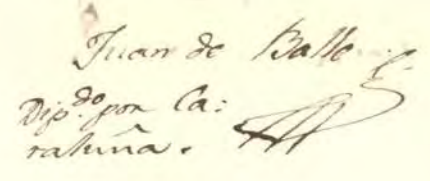 Juan de Balle
Dip.do por Ca:
taluña.